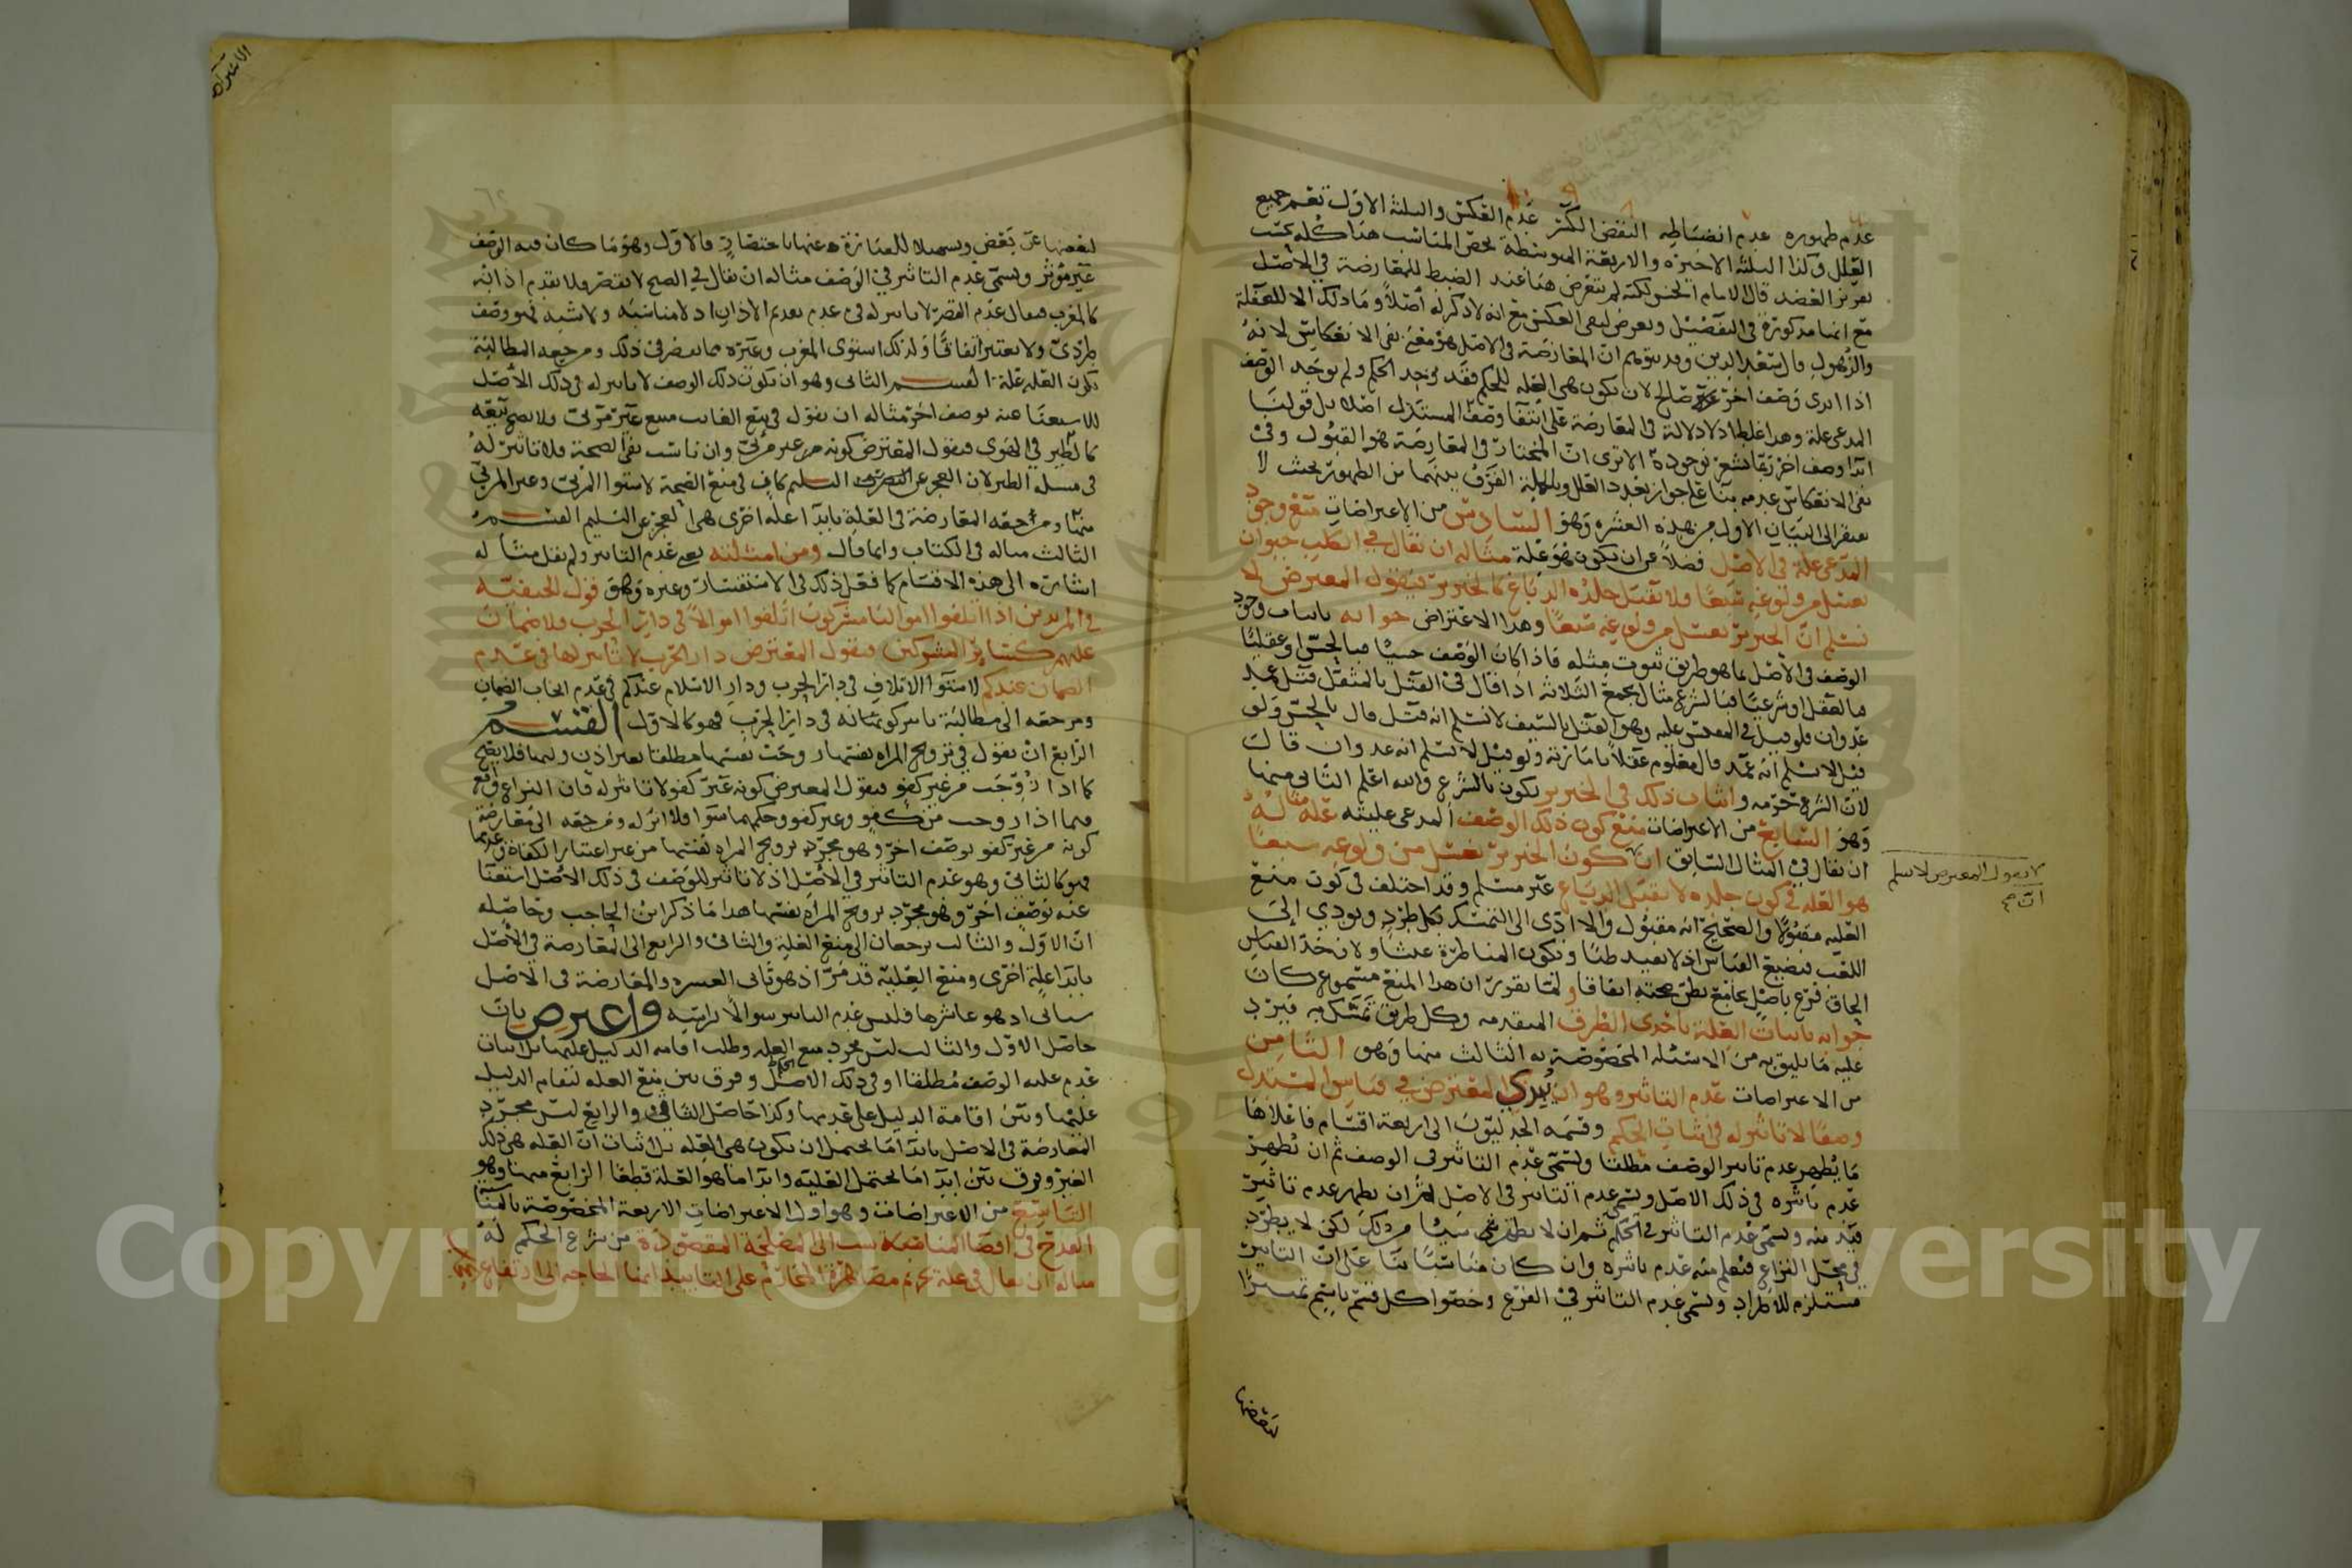 عدم ظهوره عدم انضباطه النقض الكسر عدم العكس والثلثة الاول تعم جميع
العلل وكذا الثلثة الاخيرة والاربعة المتوسطة تخص المناسب هذا كله كتب
قال الامام الحسن لكنه لم يتعرض هنا عند الضبط للمعارضة في الاصل
مع انها مذكورة في التفصيل وتعرض لنفي العكس مع انه لا ذكر له اصلا وما ذلك الا للغفلة
والذهول قال سعد الدين وقد يتوهم ان المعارضة في الاصل هو معنى نفي الانعكاس لانه
اذا ابدى وصف اخر صالح لان يكون هي العلة للحكم فقد وجد الحكم ولم يوجد الوصف
المدعى علة وهذا غلط اذ لا دلالة في المعارضة على انتفا وصف المستدل اصلا بل قولنا
ابدا وصف اخر ربما يشعر بوجوده الا ترى ان المختار في المعارضة هو القبول وفي
نفي الانعكاس عدمه بنا على جواز تعدد العلل وبالجملة الفرق بينهما من الظهور بحيث لا
يفتقر الى البيان الاول من هذه العشرة وهو السادس من الاعتراضات منع وجود
المدعى علة في الاصل فضلا عن ان يكون هو علة مثاله ان يقال في الكلب حيوان
يغسل من ولوغه سبعا فلا يقبل جلده الدباغ كالخنزير فيقول المعترض لا
نسلم ان الخنزير يغسل من ولوغه سبعا وهذا الاعتراض جوابه باثبات وجود
الوصف في الاصل بما هو طريق ثبوت مثله فاذا كان الوصف حسيا فبالحس او عقليا
فبالعقل او شرعيا فبالشرع مثال يجمع الثلاثة اذا قال في القتل بالمثقل قتل عمد
عدوان فلو قيل في المقيس عليه وهو القتل بالسيف لا نسلم انه قتل قال بالحس ولو
قيل لا نسلم انه عمد قال معلوم عقلا بامارته ولو قيل لا نسلم انه عدوان قال
لان الشرع حرمه واثبات ذلك في الخنزير يكون بالشرع والله اعلم الثاني منها
وهو السابع من الاعتراضات منع كون ذلك الوصف المدعى عليته علة مثاله
ان يقال في المثال السابق ان كون الخنزير يغسل من ولوغه سبعا
هو العلة في كون جلده لا يقبل الدباغ غير مسلم وقد اختلف في كون منع
العلية مقبولا والصحيح انه مقبول والا ادى الى التمسك بكل طرد ويودي الى
اللعب فيضيع القياس اذ لا يفيد ظنا وتكون المناظرة عبثا ولان حد القياس
الحاق فرع باصل بجامع يظن صحته اتفاقا ولما تقرر ان هذا المنع مسموع كان
جوابه باثبات العلة باحدى الطرق المتقدمه وكل طريق تمسك به فيرد
عليه ما يليق به من الاسئلة المخصوصة به الثالث منها وهو الثامن
من الاعتراضات عدم التاثير وهو ان يبدي المعترض في قياس المستدل
وصفا لا تاثير له في اثبات الحكم وقسمه الجدليون الى اربعة اقسام فاعلاها
ما يظهر عدم تاثير الوصف مطلقا ويسمى عدم التاثير في الوصف ثم ان يظهر
عدم تاثيره في ذلك الاصل ويسمى عدم التاثير في الاصل ثم ان يظهر عدم تاثير
قيد منه ويسمى عدم التاثير في الحكم ثم ان لا يظهر شي من ذلك لكن لا يطرد
في محل النزاع فيعلم منه عدم تاثيره وان كان مناسبا بنا على ان التاثير
مستلزم للاطراد ويسمى عدم التاثير في الفرع وخصوا كل قسم باسم تمييزا
لبعضها
لا نسلم
ان
لبعضها عن بعض وتسهيلا للعبارة عنها باختصار فالاول وهو ما كان فيه الوصف
غير موثر ويسمى عدم التاثير في الوصف مثاله ان يقال في الصبح لا تقصر فلا يقدم اذانه
كالمغرب فيقال عدم القصر لا تاثير له في عدم تقديم الاذان اذ لا مناسبة ولا شبه فهو وصف
طردي ولا يعتبر اتفاقا ولذلك استوى المغرب وغيره مما يقصر في ذلك ومرجعه المطالبة
بكون العلة علة القسم الثاني وهو ان يكون ذلك الوصف لا تاثير له في ذلك الاصل
للاستغنا عنه بوصف اخر مثاله ان يقول في بيع الغايب مبيع غير مرئي فلا يصح بيعه
كالطير في الهوى فيقول المعترض كونه غير مرئي وان ناسب نفي الصحة فلا تاثير له
في مسئلة الطير لان العجز عن التسليم كاف في منع الصحة لاستوا المرئي وغير المرئي
فيهما ومرجعه المعارضة في العلة بابدا علة اخرى هي العجز عن التسليم القسم
الثالث مثاله في الكتاب وانما قال ومن امثلته يعني عدم التاثير ولم يقل مثاله
اشارة الى هذه الاقسام كما فعل ذلك في الاستفسار وغيره وهو قول الحنفية
في المرتدين اذا اتلفوا اموالنا مشركون اتلفوا اموالا في دار الحرب فلا ضمان
عليهم كساير المشركين فيقول المعترض دار الحرب لا تاثير لها في عدم
الضمان عندكم لاستوا الاتلاف في دار الحرب ودار الاسلام عندكم في عدم ايجاب الضمان
ومرجعه الى مطالبة تاثير كونه في دار الحرب فهو كالاول القسم
الرابع ان يقول في تزويج المراة نفسها زوجت نفسها مطلقا بغير اذن وليها فلا يصح
كما اذا زوجت من غير كفو فيقول المعترض كونه غير كفو لا تاثير له فان النزاع وقع
فيما اذا زوجت من كفو وغير كفو وحكمهما سوا فلا اثر له ومرجعه الى معارضة
كونه من غير كفو بوصف اخر وهو مجرد تزويج المراة نفسها من غير اعتبار الكفاة وعدمها
فهو كالثاني وهو عدم التاثير في الاصل اذ لا تاثير للوصف في ذلك الاصل استغنا
عنه بوصف اخر وهو مجرد تزويج المراة نفسها هذا ما ذكر ابن الحاجب وحاصله
ان الاول والثالث يرجعان الى منع العلية والثاني والرابع الى المعارضة في الاصل
بابدا علة اخرى ومنع العلية قد مر اذ هو ثاني العشره والمعارضة في الاصل
سياتي اذ هو عاشرها فليس عدم التاثير سوالا براسه واعترض بان
حاصل الاول والثالث ليس مجرد منع العلة وطلب اقامة الدليل عليها بل اثبات
عدم علية الوصف مطلقا او في ذلك الاصل وفرق بين منع العلة لتقام الدليل
عليها وبين اقامة الدليل على عدمها وكذا حاصل الثاني والرابع ليس مجرد
المعارضة في الاصل بابدا ما يحتمل ان يكون هي العلة بل اثبات ان العلة هي ذلك
الغير وفرق بين ابدا ما يحتمل العلية وابدا ما هو العلة قطعا الرابع منها وهو
التاسع من الاعتراضات وهو اول الاعتراضات الاربعة المخصوصة بالمناسبة
القدح في افضا المناسب الى المصلحة المقصودة من شرع الحكم له
مثاله ان يقال في علة تحريم مصاهرة المحارم على التابيد انها الحاجة الى ارتفاع الحجاب